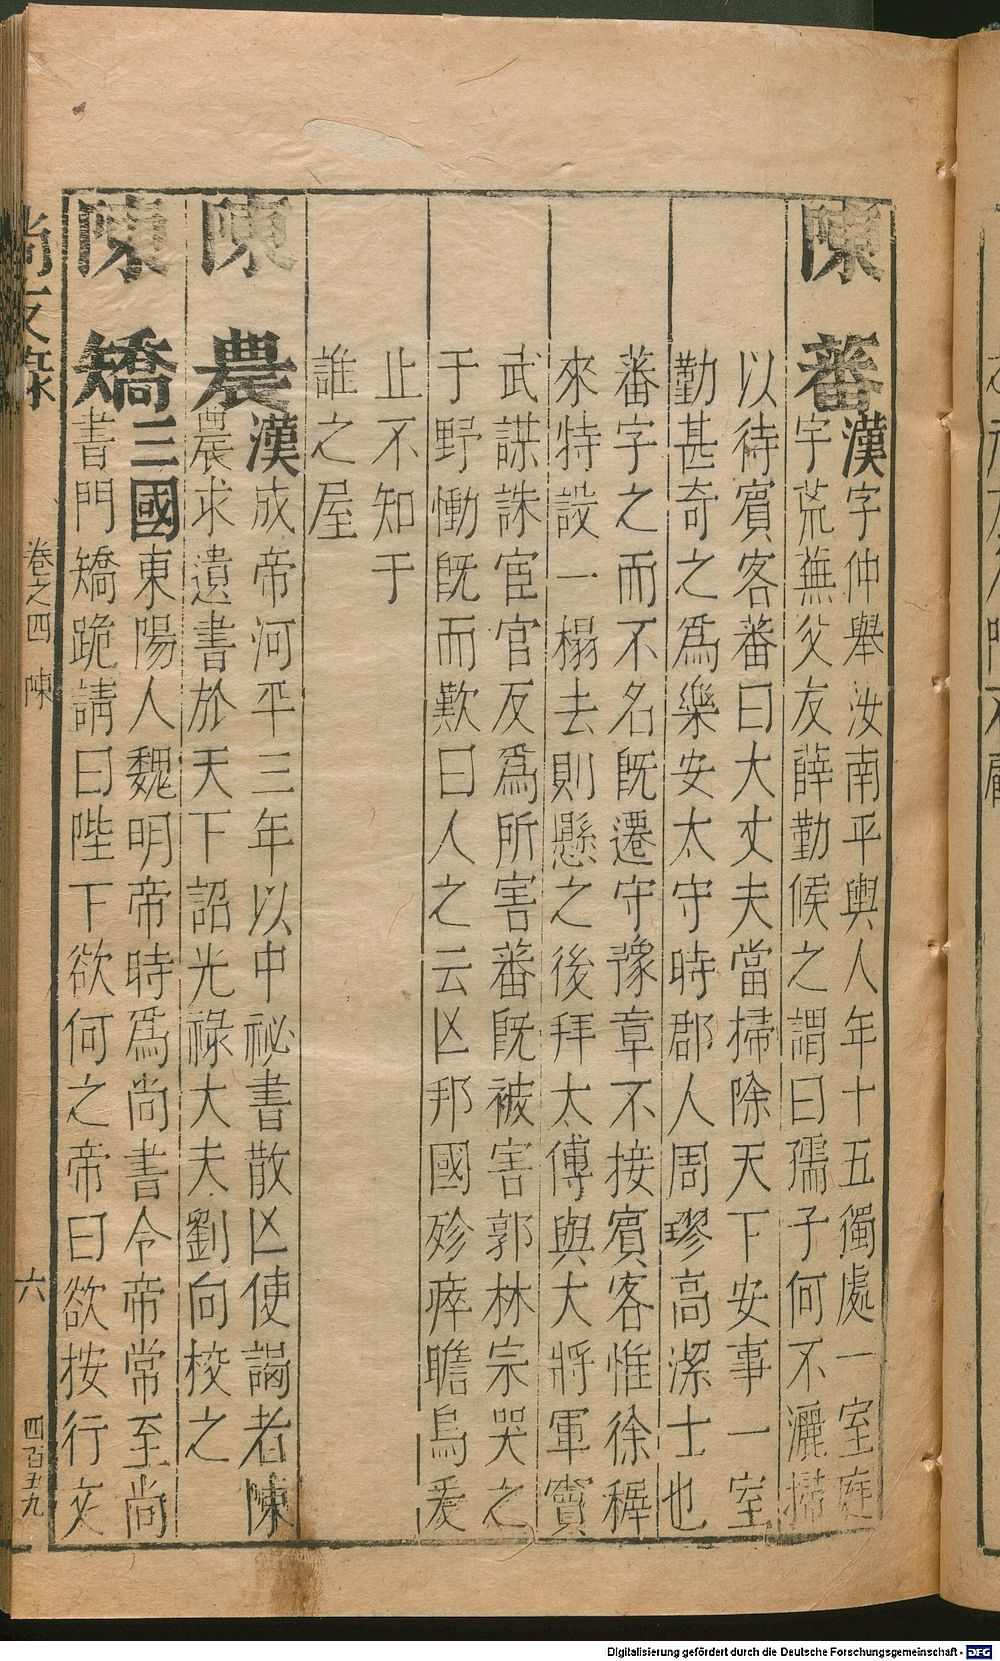 陳蕃
漢字仲舉汝南平輿人年十五獨處一室庭
宇荒蕪父友薛勤候之謂曰孺子何不灑掃
以待賓客蕃曰大丈夫當掃除天下安事一室
勤甚奇之爲樂安太守時郡人周璆高潔士也
蕃字之而不名旣遷守豫章不接賓客惟徐穉
來特設一榻去則懸之後拜太傅與大將軍竇
武謀誅宦官反爲所害蕃旣被害郭林宗哭之
于野慟旣而歎曰人之云亾邦國殄瘁瞻烏爰
止不知于
誰之屋
陳農
漢成帝河平三年以中祕書散亾使謁者陳
農求遺書於天下詔光祿大夫劉向校之
陳矯
三國東陽人魏明帝時爲尚書令帝常至尚
書門矯跪請曰陛下欲何之帝曰欲按行文
尚友錄
卷之四 陳
六
四百五九
Digitalisierung gefördert durch die Deutsche Forschungsgemeinschaft - DFG